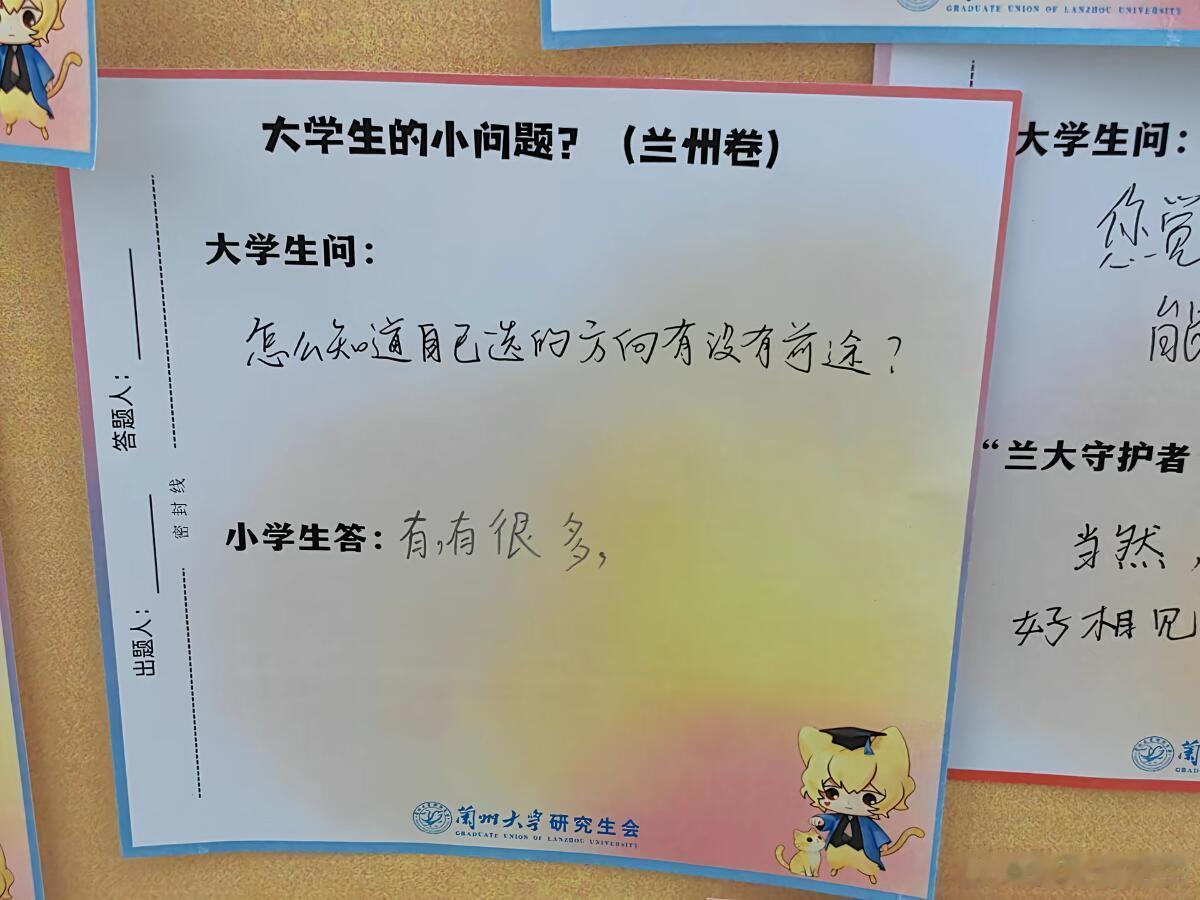 GRADUATE UNION OF LANZHOU UNIVERSITY
大学生的小问题？（兰州卷）
大学生问：
怎么知道自己选的方向有没有前途？
小学生答：有，有很多，
答题人：
密封线
出题人：
兰州大学研究生会
GRADUATE UNION OF LANZHOU UNIVERSITY
大学生问：
您觉
能
“兰大守护者
当然，
好相见
兰
GRAD